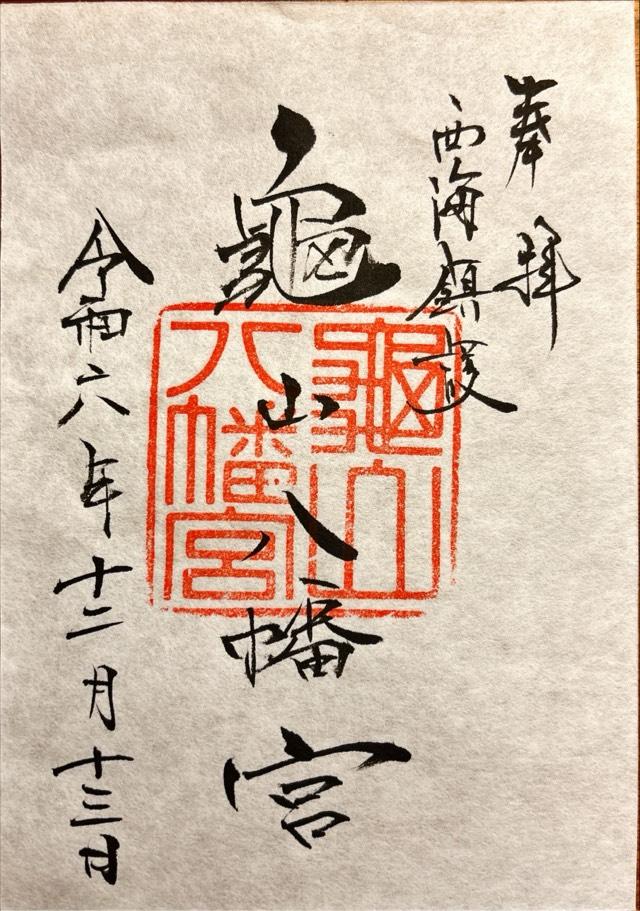 奉拝
西海鎮護
龜山八幡宮
龜山
八幡宮
令和六年十二月十三日